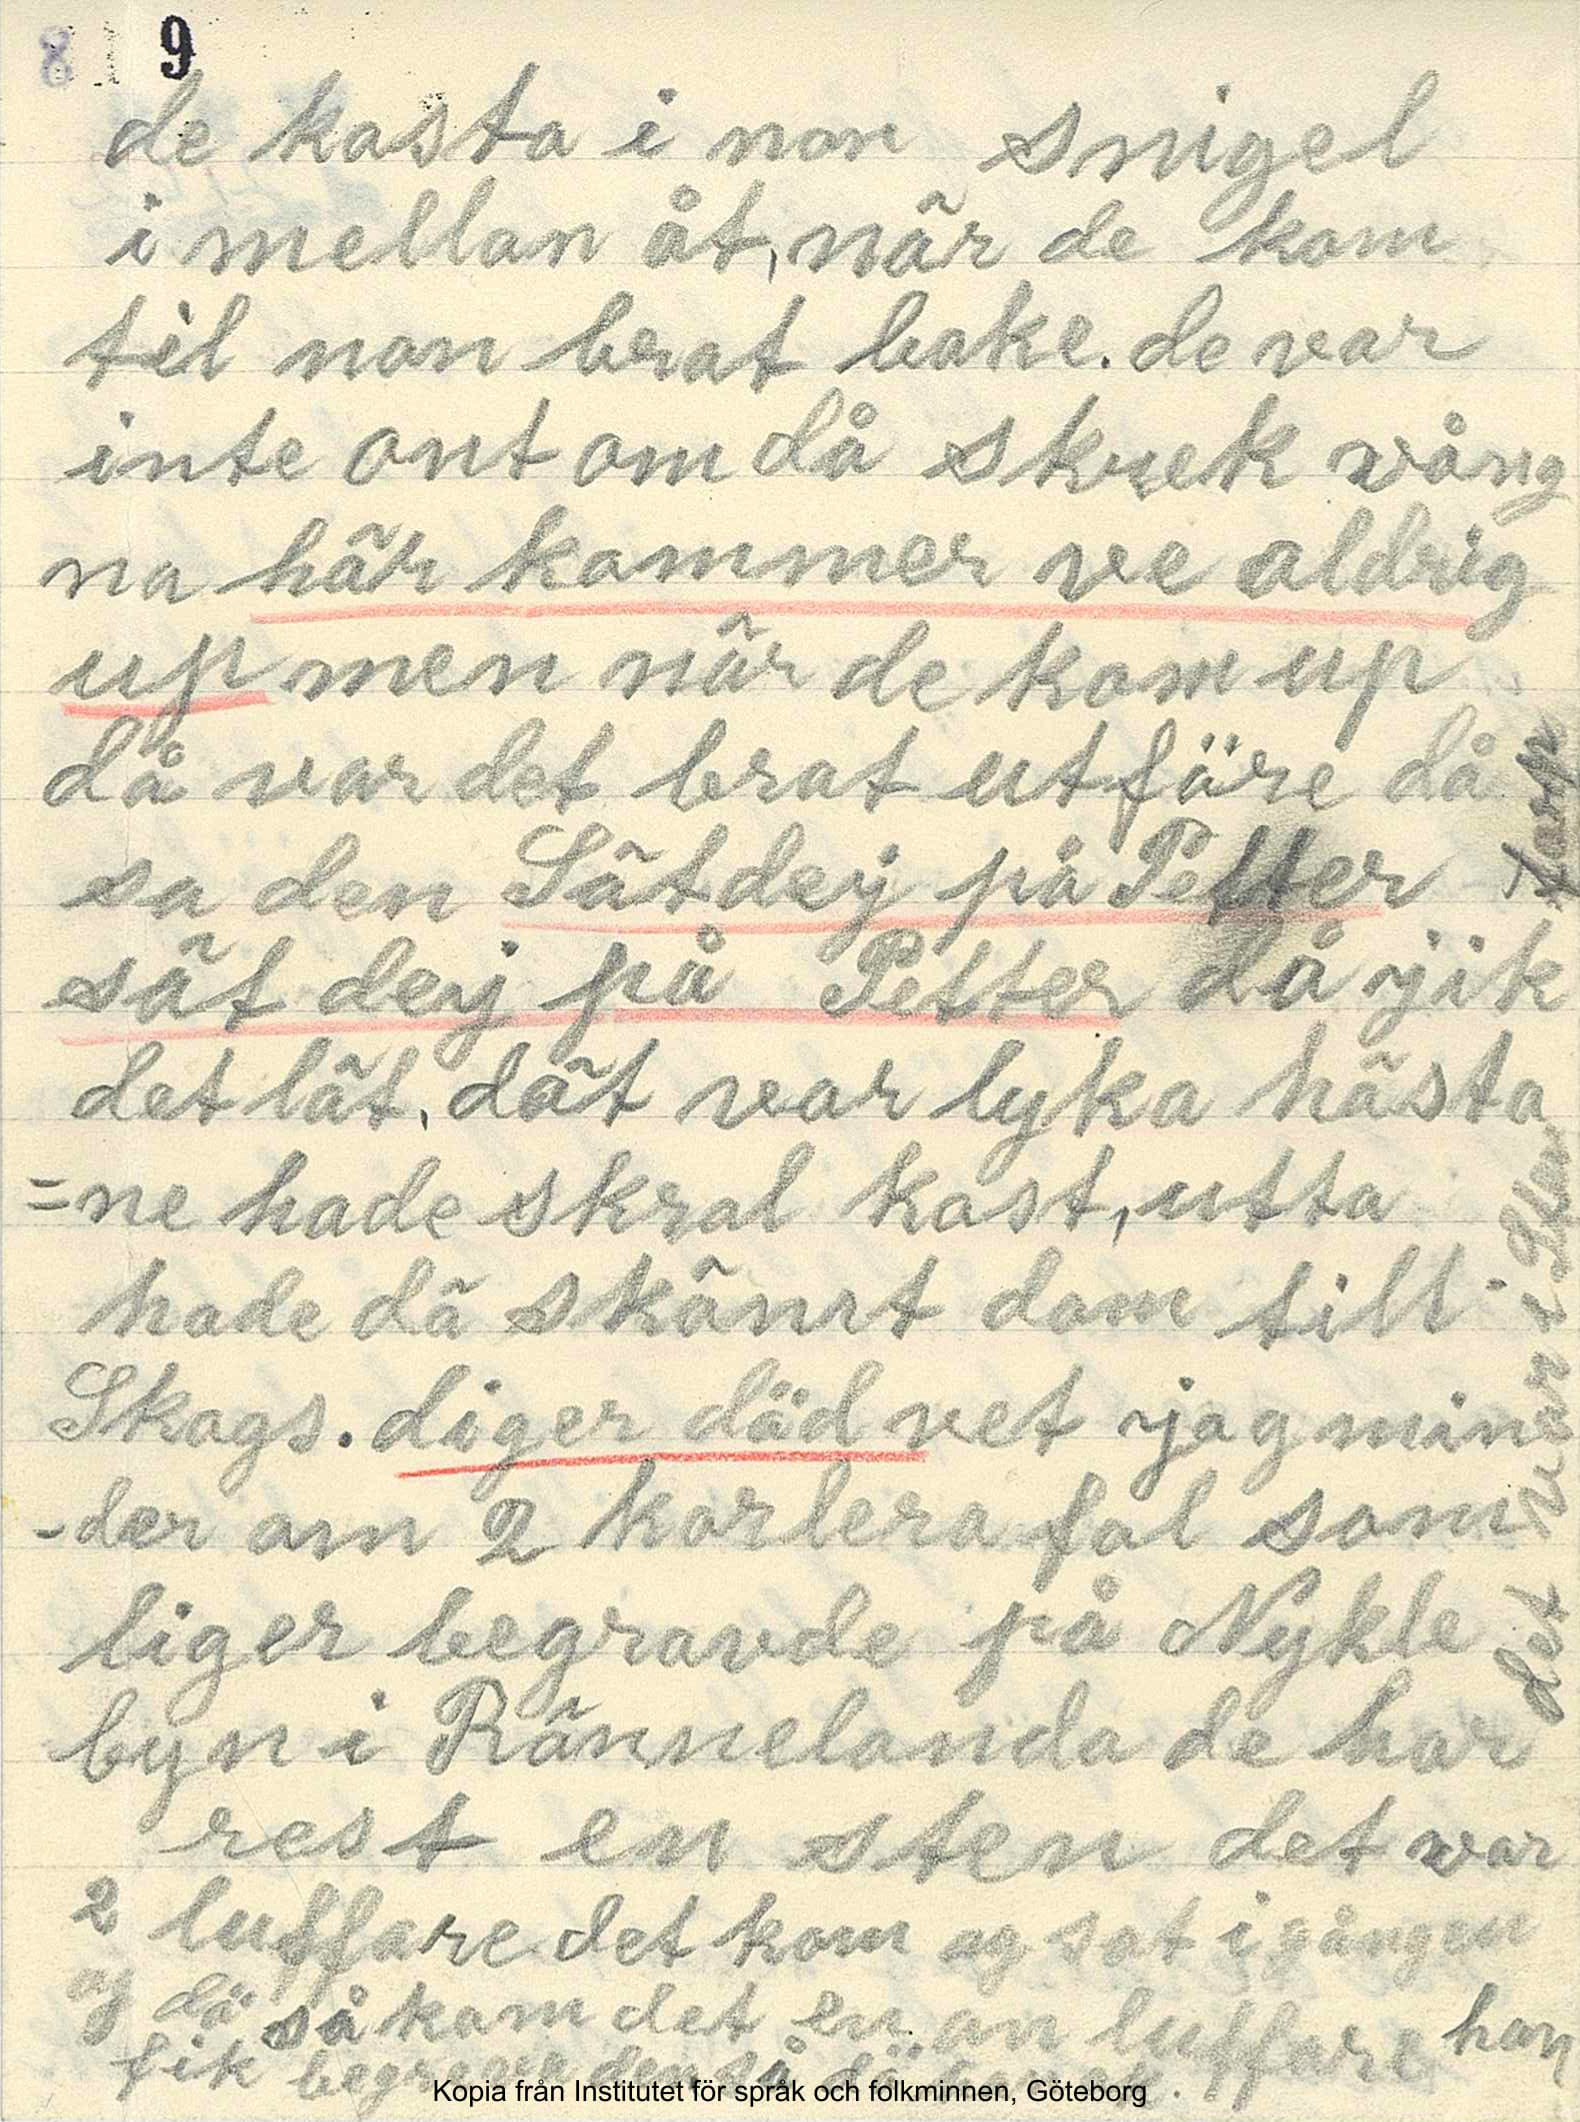 8 9
de kasta i non snigel
i mellan åt, når de kom
til non brat bake. de var
inte ont om då skrek vång
na här kommer ve aldrig
up men når de kom up
då var det brat utfäre då
sa den Sät dej på Petter
sät dej på Petter då jik
det lät, dät var lyka hästa
=ne hade skral kost, utta
hade dä skänrt dom till
Skogs. diger död vet jag min
-der om 2 korlera fal som
liger begravde på Nykle
byn i Rännelanda de har
rest en sten det var
2 luffare det kom og sat i gången
og dä så kom det en an luffare han
fik begrave den så
det
torp
Kopia från Institutet för språk och folkminnen, Göteborg